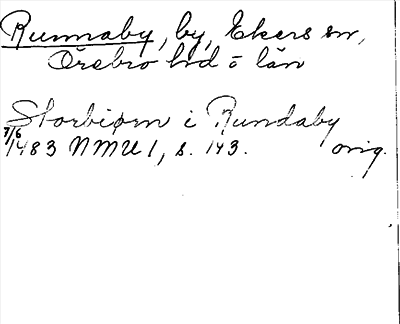 Runnaby, by, Ekers sn,
Örebro hd o län
Storbiørn i Rundaby
7/6
1483 NMU 1, s. 143. orig.